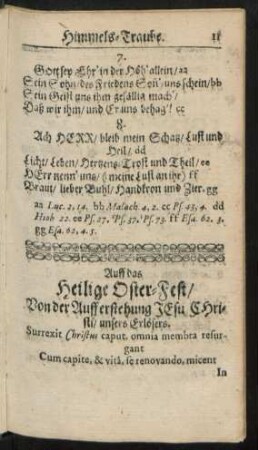 Himmels-Traube. 11
7.
Gott sey Ehr' in der Höh' allein/ aa
Sein Sohn/ des Friedens Soñ', uns schein/ bb
Sein Geist uns ihm gefällig mach'/
Daß wir ihm/ und Er uns behag'! cc
8.
Ach HERR/ bleib mein Schatz/ Lust und
Heil/ dd
Licht/ Leben/ Hertzens-Trost und Theil/ ee
HErr nenn' uns/ (meine Lust an ihr) ff
Braut/ lieber Buhl/ Handkron und Zier. gg
aa Luc. 2. 14. bb Malach. 4, 2. cc Ps. 45, 4. dd
Hiob 22. ee Ps. 27. Ps. 37. Ps. 73. ff Esa. 62. 3.
gg Esa. 62. 4. 5.
Auff das
Heilige Oster-Fest/
Von der Aufferstehung JEsu CHri-
sti/ unsers Erlösers.
Surrexit Christus caput, omnia membra resur-
gant
Cum capite, & vitâ, se renovando, micent
In